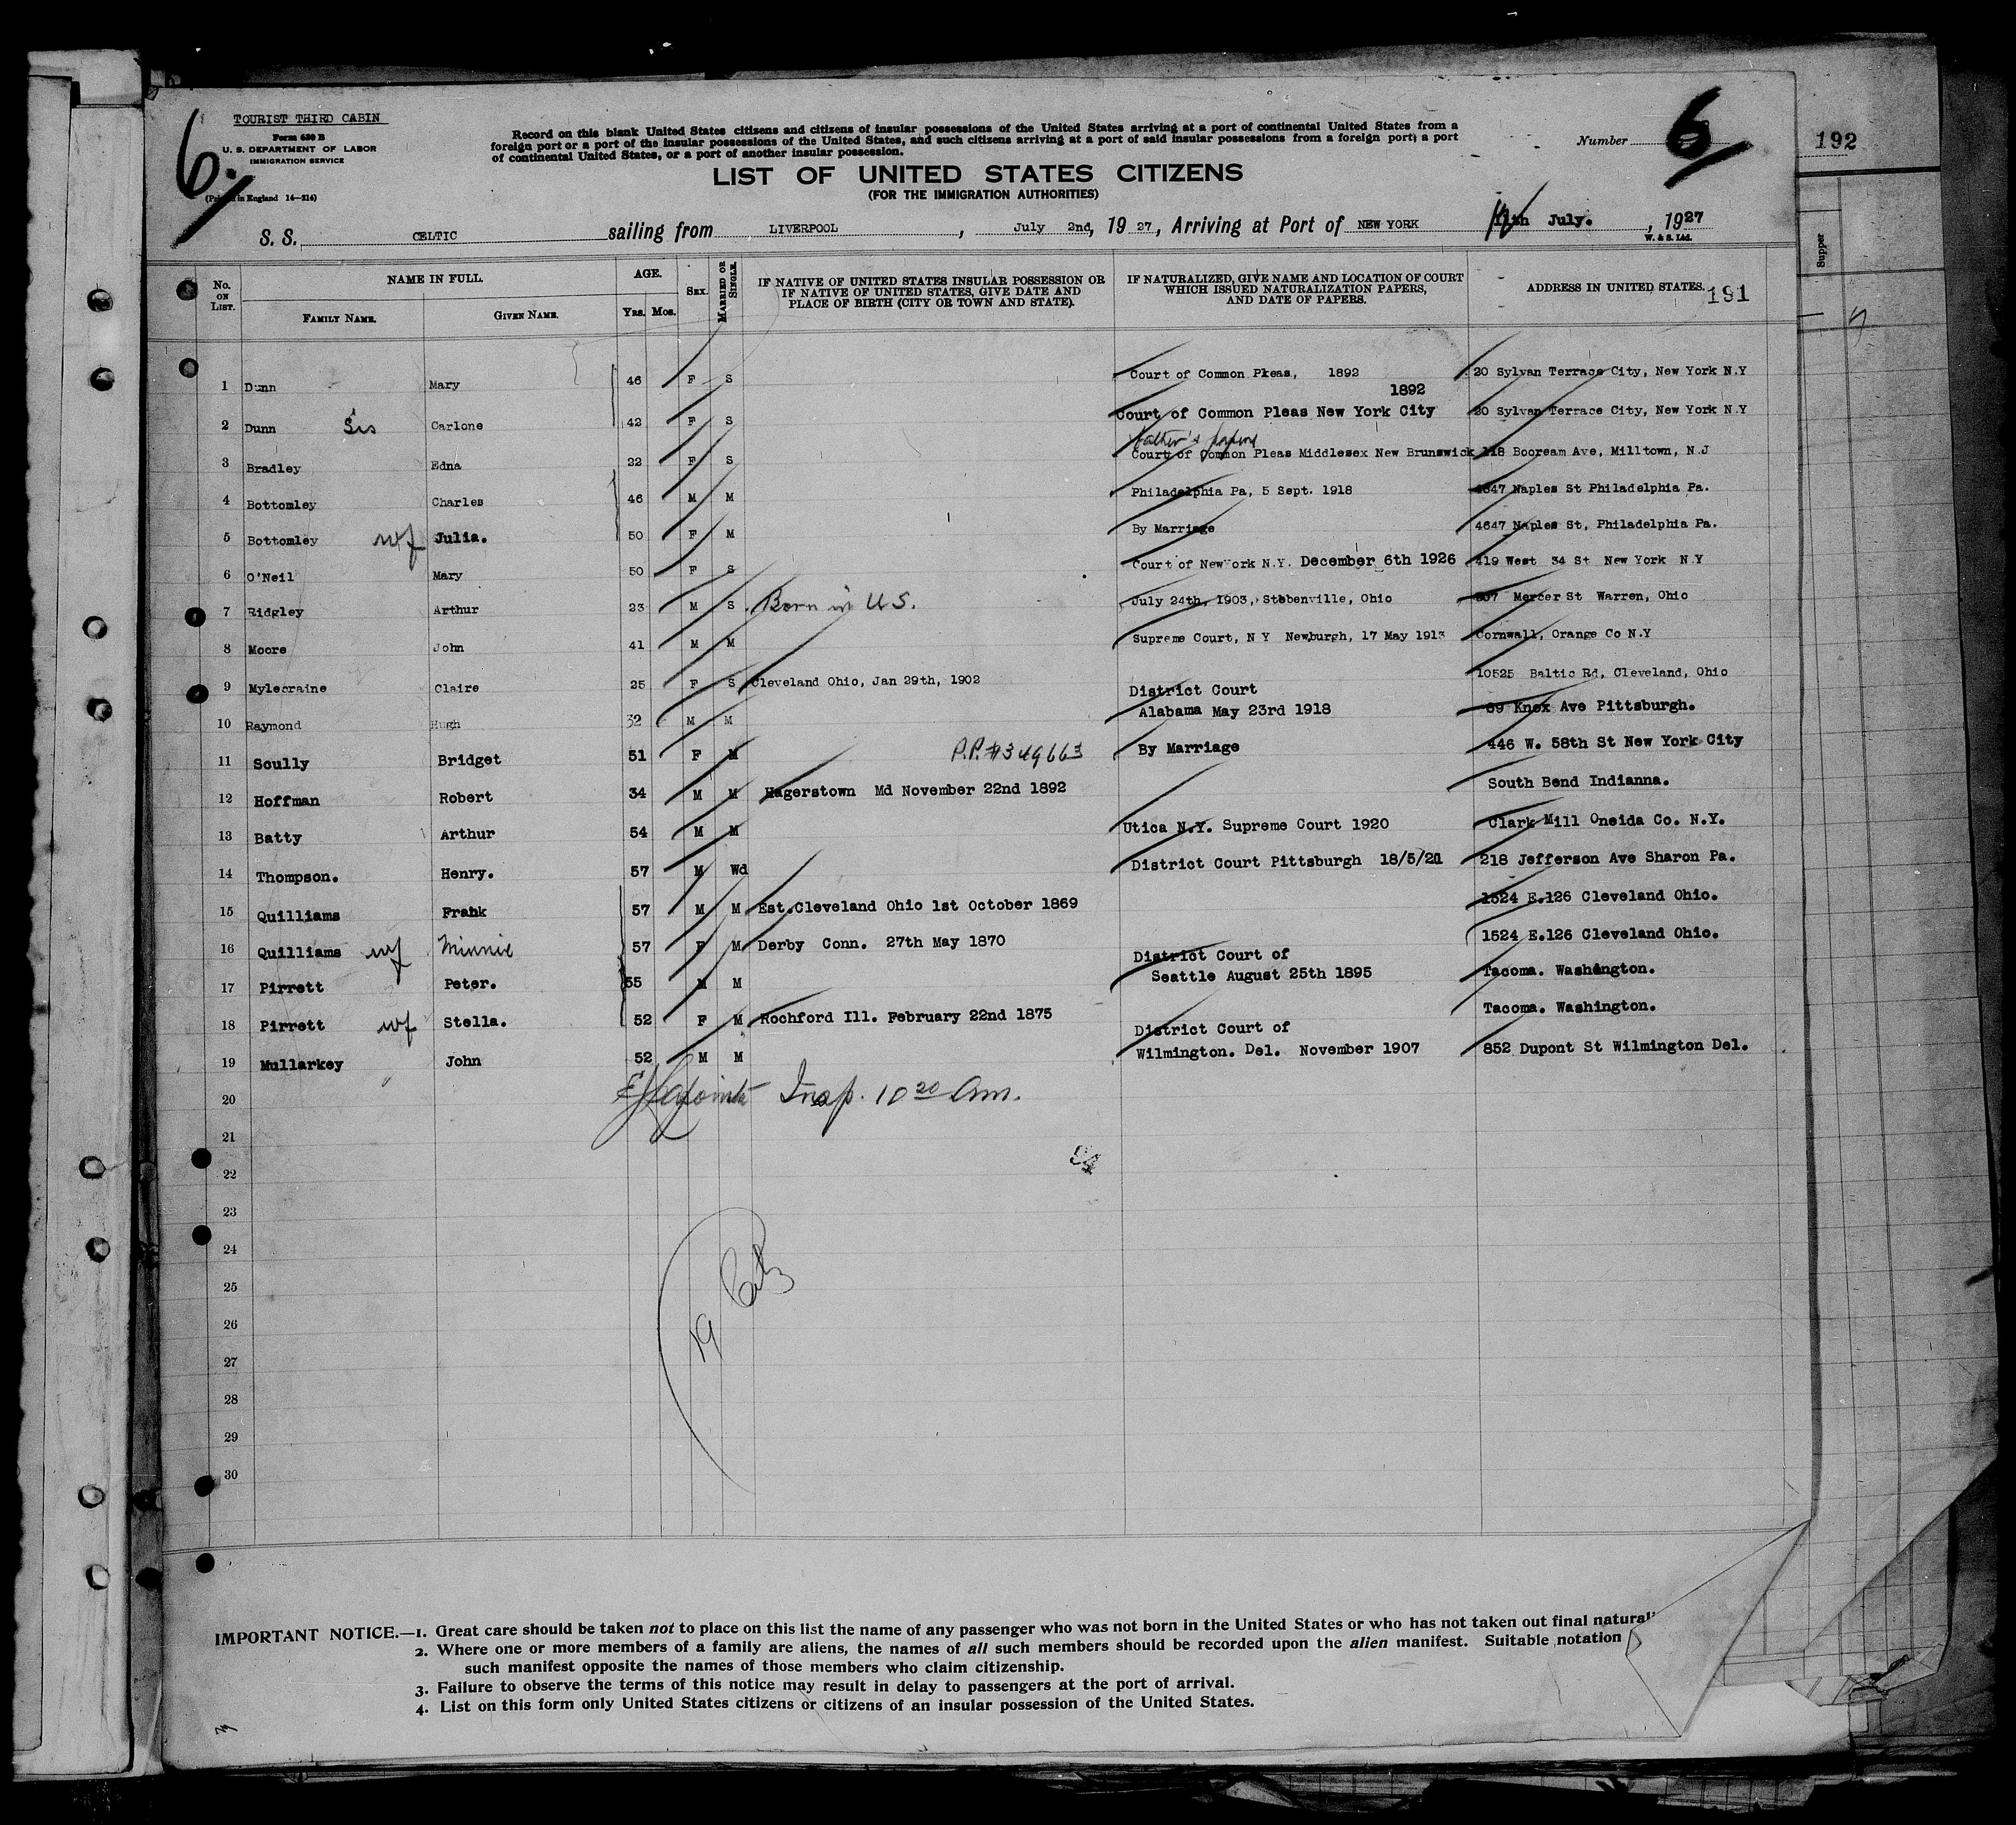 6.
TOURIST THIRD CABIN
Form 630 B
U. S. DEPARTMENT OF LABOR
IMMIGRATION SERVICE
in England 14—214)
Record on this blank United States citizens and citizens of insular possessions of the United States arriving at a port of continental United States from a
foreign port or a port of the insular possessions of the United States, and such citizens arriving at a port of said insular possessions from a foreign port; a port
of continental United States, or a port of another insular possession.
Number 6
192
LIST OF UNITED STATES CITIZENS
(FOR THE IMMIGRATION AUTHORITIES)
S. S. CELTIC sailing from LIVERPOOL, July 2nd, 19 27, Arriving at Port of NEW YORK July. , 1927
W. & S. Ltd.
Supper
No. ON LIST.
NAME IN FULL.
FAMILY NAME. GIVEN NAME.
AGE.
YRS. MOS.
SEX.
MARRIED OR SINGLE.
IF NATIVE OF UNITED STATES INSULAR POSSESSION OR
IF NATIVE OF UNITED STATES, GIVE DATE AND
PLACE OF BIRTH (CITY OR TOWN AND STATE).
IF NATURALIZED, GIVE NAME AND LOCATION OF COURT
WHICH ISSUED NATURALIZATION PAPERS,
AND DATE OF PAPERS.
ADDRESS IN UNITED STATES.
191
1 Dunn Mary 46 F S Court of Common Pleas, 1892 20 Sylvan Terrace City, New York N.Y
1892
2 Dunn Sis Carlone 42 F S Court of Common Pleas New York City 20 Sylvan Terrace City, New York N.Y
father's papers
3 Bradley Edna 22 F S Court of Common Pleas Middlesex New Brunswick 118 Booream Ave, Milltown, N.J
4 Bottomley Charles 46 M M Philadelphia Pa, 5 Sept. 1918 4647 Naples St Philadelphia Pa.
5 Bottomley wf Julia. 50 F M By Marriage 4647 Naples St, Philadelphia Pa.
6 O'Neil Mary 50 F S Court of New York N.Y. December 6th 1926 419 West 34 St New York N.Y
7 Ridgley Arthur 23 M S Born in U S. July 24th, 1903, Stebenville, Ohio 307 Mercer St Warren, Ohio
8 Moore John 41 M M Supreme Court, N Y Newburgh, 17 May 1913 Cornwall, Orange Co N.Y
9 Mylecraine Claire 25 F S Cleveland Ohio, Jan 29th, 1902 10525 Baltic Rd, Cleveland, Ohio
District Court
10 Raymond Hugh 32 M M Alabama May 23rd 1918 69 Knox Ave Pittsburgh.
11 Scully Bridget 51 F M P.P.#349663 By Marriage 446 W. 58th St New York City
12 Hoffman Robert 34 M M Hagerstown Md November 22nd 1892 South Bend Indianna.
13 Batty Arthur 54 M M Utica N.Y. Supreme Court 1920 Clark Mill Oneida Co. N.Y.
14 Thompson. Henry. 57 M Wd District Court Pittsburgh 18/5/21 218 Jefferson Ave Sharon Pa.
15 Quilliams Frank 57 M M Est.Cleveland Ohio 1st October 1869 1524 E.126 Cleveland Ohio.
16 Quilliams wf Minnie 57 F M Derby Conn. 27th May 1870 1524 E.126 Cleveland Ohio.
District Court of
17 Pirrett Peter. 55 M M Seattle August 25th 1895 Tacoma. Washington.
18 Pirrett wf Stella. 52 F M Rochford Ill. February 22nd 1875 Tacoma. Washington.
District Court of
19 Mullarkey John 52 M M Wilmington. Del. November 1907 852 Dupont St Wilmington Del.
20 Insp. 10 20 Am.
21
22
23
24
25
26
27
28
29
30
19 Citz
IMPORTANT NOTICE.—1. Great care should be taken not to place on this list the name of any passenger who was not born in the United States or who has not taken out final
2. Where one or more members of a family are aliens, the names of all such members should be recorded upon the alien manifest. Suitable notation
such manifest opposite the names of those members who claim citizenship.
3. Failure to observe the terms of this notice may result in delay to passengers at the port of arrival.
4. List on this form only United States citizens or citizens of an insular possession of the United States.